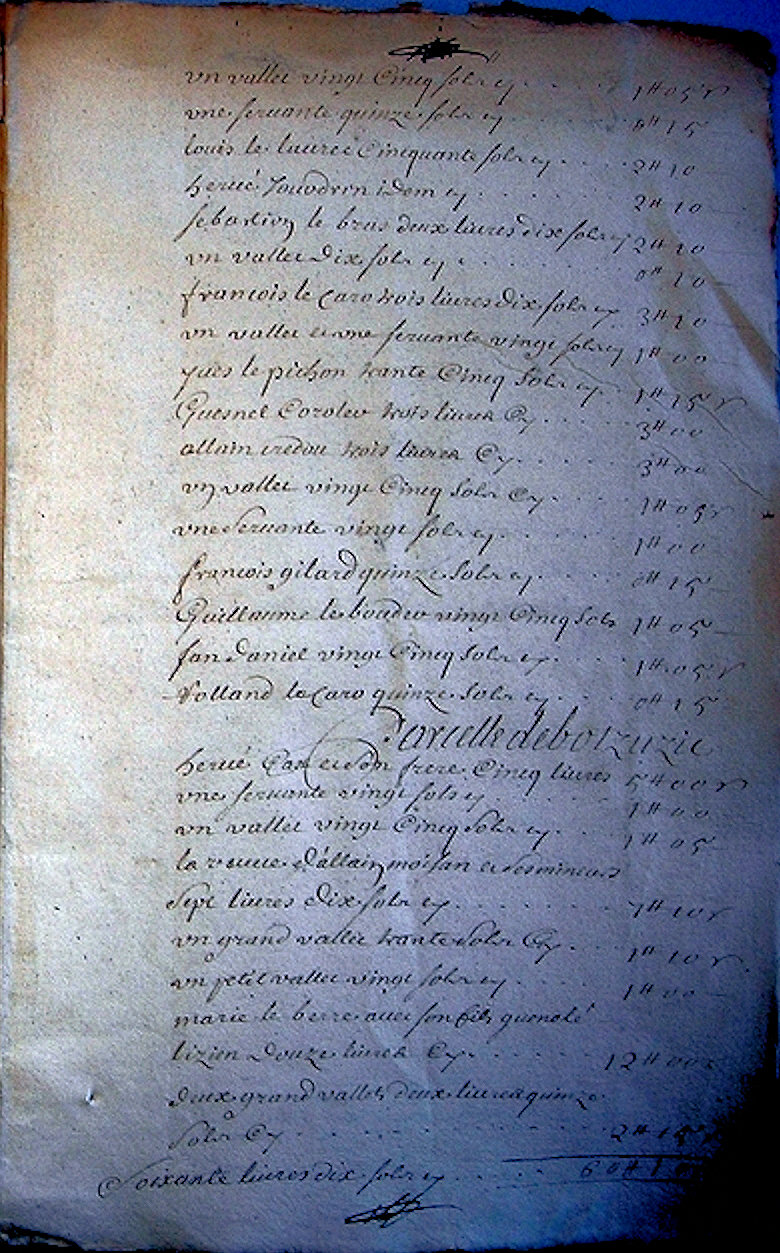 un vallet vingt Cinq sols cy . . . . . 1# 05 s
une servante quinze sols cy . . . . 0# 15
louis le livrec Cinquante sols cy . . . . 2# 10
hervé idem cy . . . . . . 2# 10
sebastien le bras deux livres dix sols cy 2# 10
un vallet Dix sols cy . . . . . . 0# 10
francois le Caro trois livres dix sols cy 3# 10
un vallet et une servante vingt sols cy 1# 00
yves le pichon trante Cinq sols cy . . 1# 15 s
Guesnel trois livres Cy . . . . . 3# 00
allain credou trois livres Cy . . . . . 3# 00
un vallet vingt Cinq sols Cy . . . . 1# 05 s
une servante vingt sols cy . . . . . 1# 00
francois gilard quinze sols cy . . . . 0# 15
Guillaume le vingt Cinq sols 1# 05
Jan Daniel vingt Cinq sols cy . . . . 1# 05 s
Rolland le Caro quinze sols cy . . . . 0# 15
Parcelle de
hervé et son frere Cinq livres 5# 00 s
une servante vingt sols cy . . . . . 1# 00
un vallet vingt Cinq sols cy . . . . 1# 05
la veuve d'allain moisan et ses mineurs
sept livres Dix sols cy . . . . . . 7# 10 s
un grand vallet trante sols Cy . . . . 1# 10 s
un petit vallet vingt sols cy . . . . 1# 00
marie le berre avec son fils guenolé
lizien Douze livres Cy . . . . . . 12# 00 s
deux grand vallets deux livres quinze
sols Cy . . . . . . . . 2# 15 s
Soixante livres dix sols cy . . . . . 60# 10